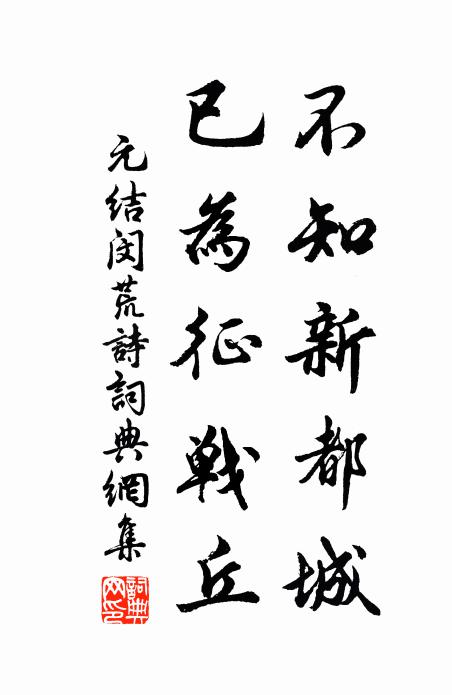 不知新都城
已為征戰丘
元結閔荒詩詞典網集
詞典網印